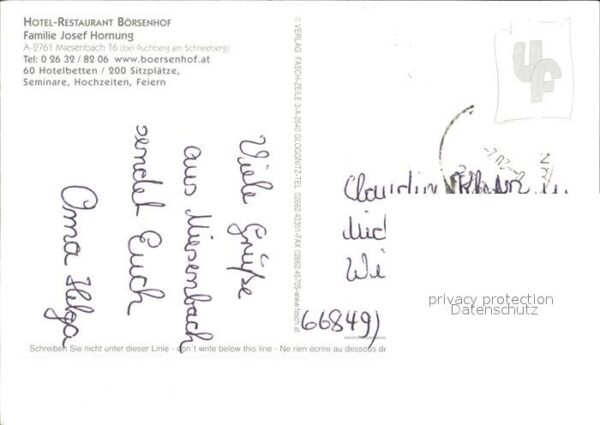 HOTEL-RESTAURANT BÖRSENHOF
Familie Josef Hornung
A-2761 Miesenbach 16 (bei Puchberg am Schneeberg)
Tel: 0 26 32 / 82 06 www.boersenhof.at
60 Hotelbetten / 200 Sitzplätze,
Seminare, Hochzeiten, Feiern
Viele Grüße
aus Miesenbach
sendet Euch
Oma Helga
© VERLAG FASCH-ZEILE 3-A-2640 GLOGGNITZ-TEL. 02662/42301-FAX 02662/45705-www.fasch.at
Claudia
Mic
Wi
66849)
privacy protection
Datenschutz
Schreiben Sie nicht unter dieser Linie - don't write below this line - Ne rien écrire au dessous de